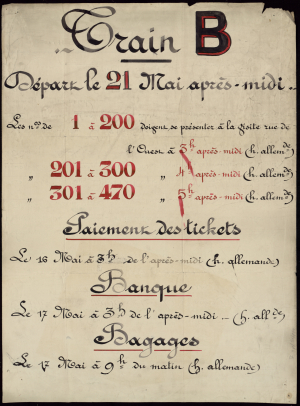 Train B
Départ le 21 Mai après-midi
Les nos de 1 à 200 doivent se présenter à la visite rue de
l'Ouest à 3h après-midi (h. allemde)
„ 201 à 300 „ 4h après-midi (h. allemde)
„ 301 à 470 „ 5h après-midi (h. allemde)
Paiement des tickets
Le 16 Mai à 3h de l'après-midi (h. allemande)
Banque
Le 17 Mai à 3h de l'après-midi (h. allde)
Bagages
Le 17 Mai à 9h du matin (h. allemande)